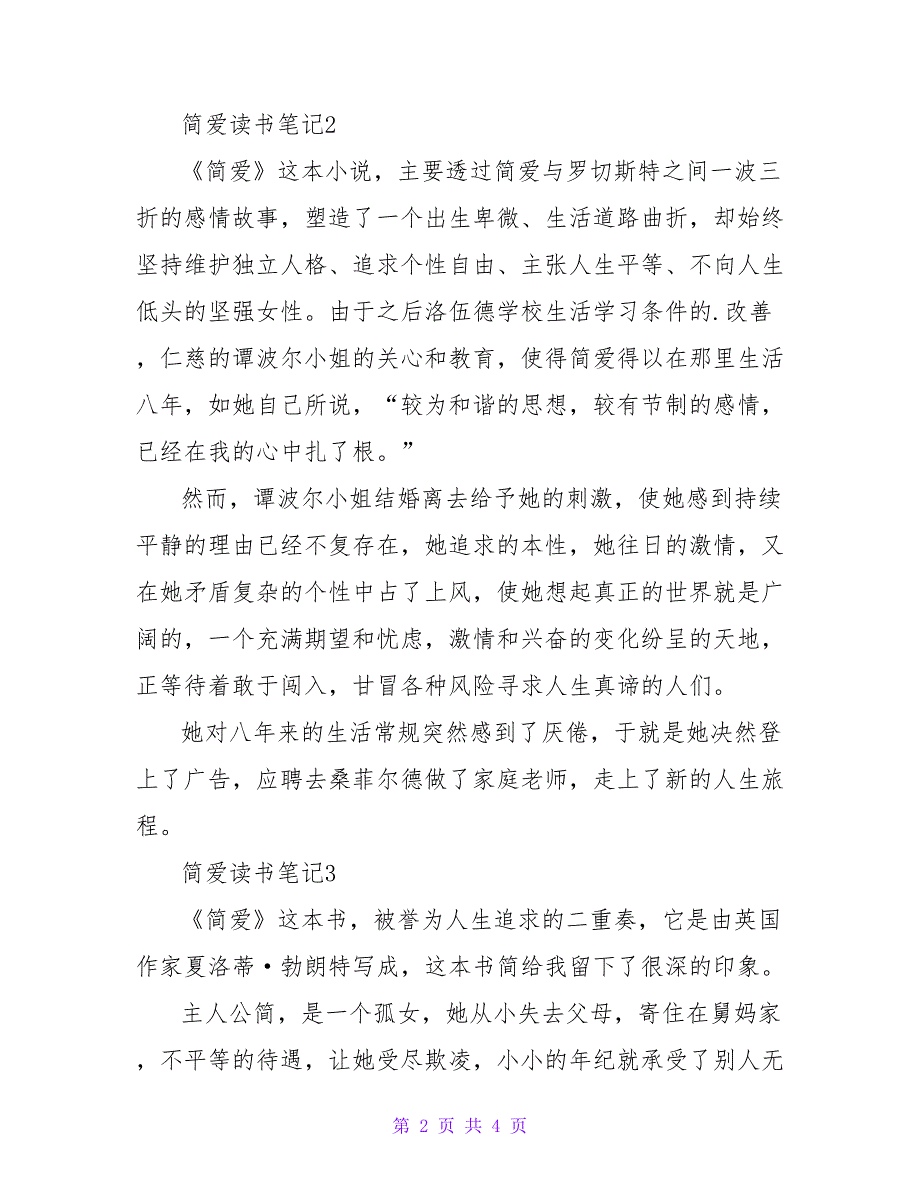 简爱读书笔记2
《简爱》这本小说，主要透过简爱与罗切斯特之间一波三
折的感情故事，塑造了一个出生卑微、生活道路曲折，却始终
坚持维护独立人格、追求个性自由、主张人生平等、不向人生
低头的坚强女性。由于之后洛伍德学校生活学习条件的.改善
，仁慈的谭波尔小姐的关心和教育，使得简爱得以在那里生活
八年，如她自己所说，“较为和谐的思想，较有节制的感情，
已经在我的心中扎了根。”
然而，谭波尔小姐结婚离去给予她的刺激，使她感到持续
平静的理由已经不复存在，她追求的本性，她往日的激情，又
在她矛盾复杂的个性中占了上风，使她想起真正的世界就是广
阔的，一个充满期望和忧虑，激情和兴奋的变化纷呈的天地，
正等待着敢于闯入，甘冒各种风险寻求人生真谛的人们。
她对八年来的生活常规突然感到了厌倦，于就是她决然登
上了广告，应聘去桑菲尔德做了家庭老师，走上了新的人生旅
程。
简爱读书笔记3
《简爱》这本书，被誉为人生追求的二重奏，它是由英国
作家夏洛蒂·勃朗特写成，这本书简给我留下了很深的印象。
主人公简，是一个孤女，她从小失去父母，寄住在舅妈家
，不平等的待遇，让她受尽欺凌，小小的年纪就承受了别人无
第 2 页 共 4 页